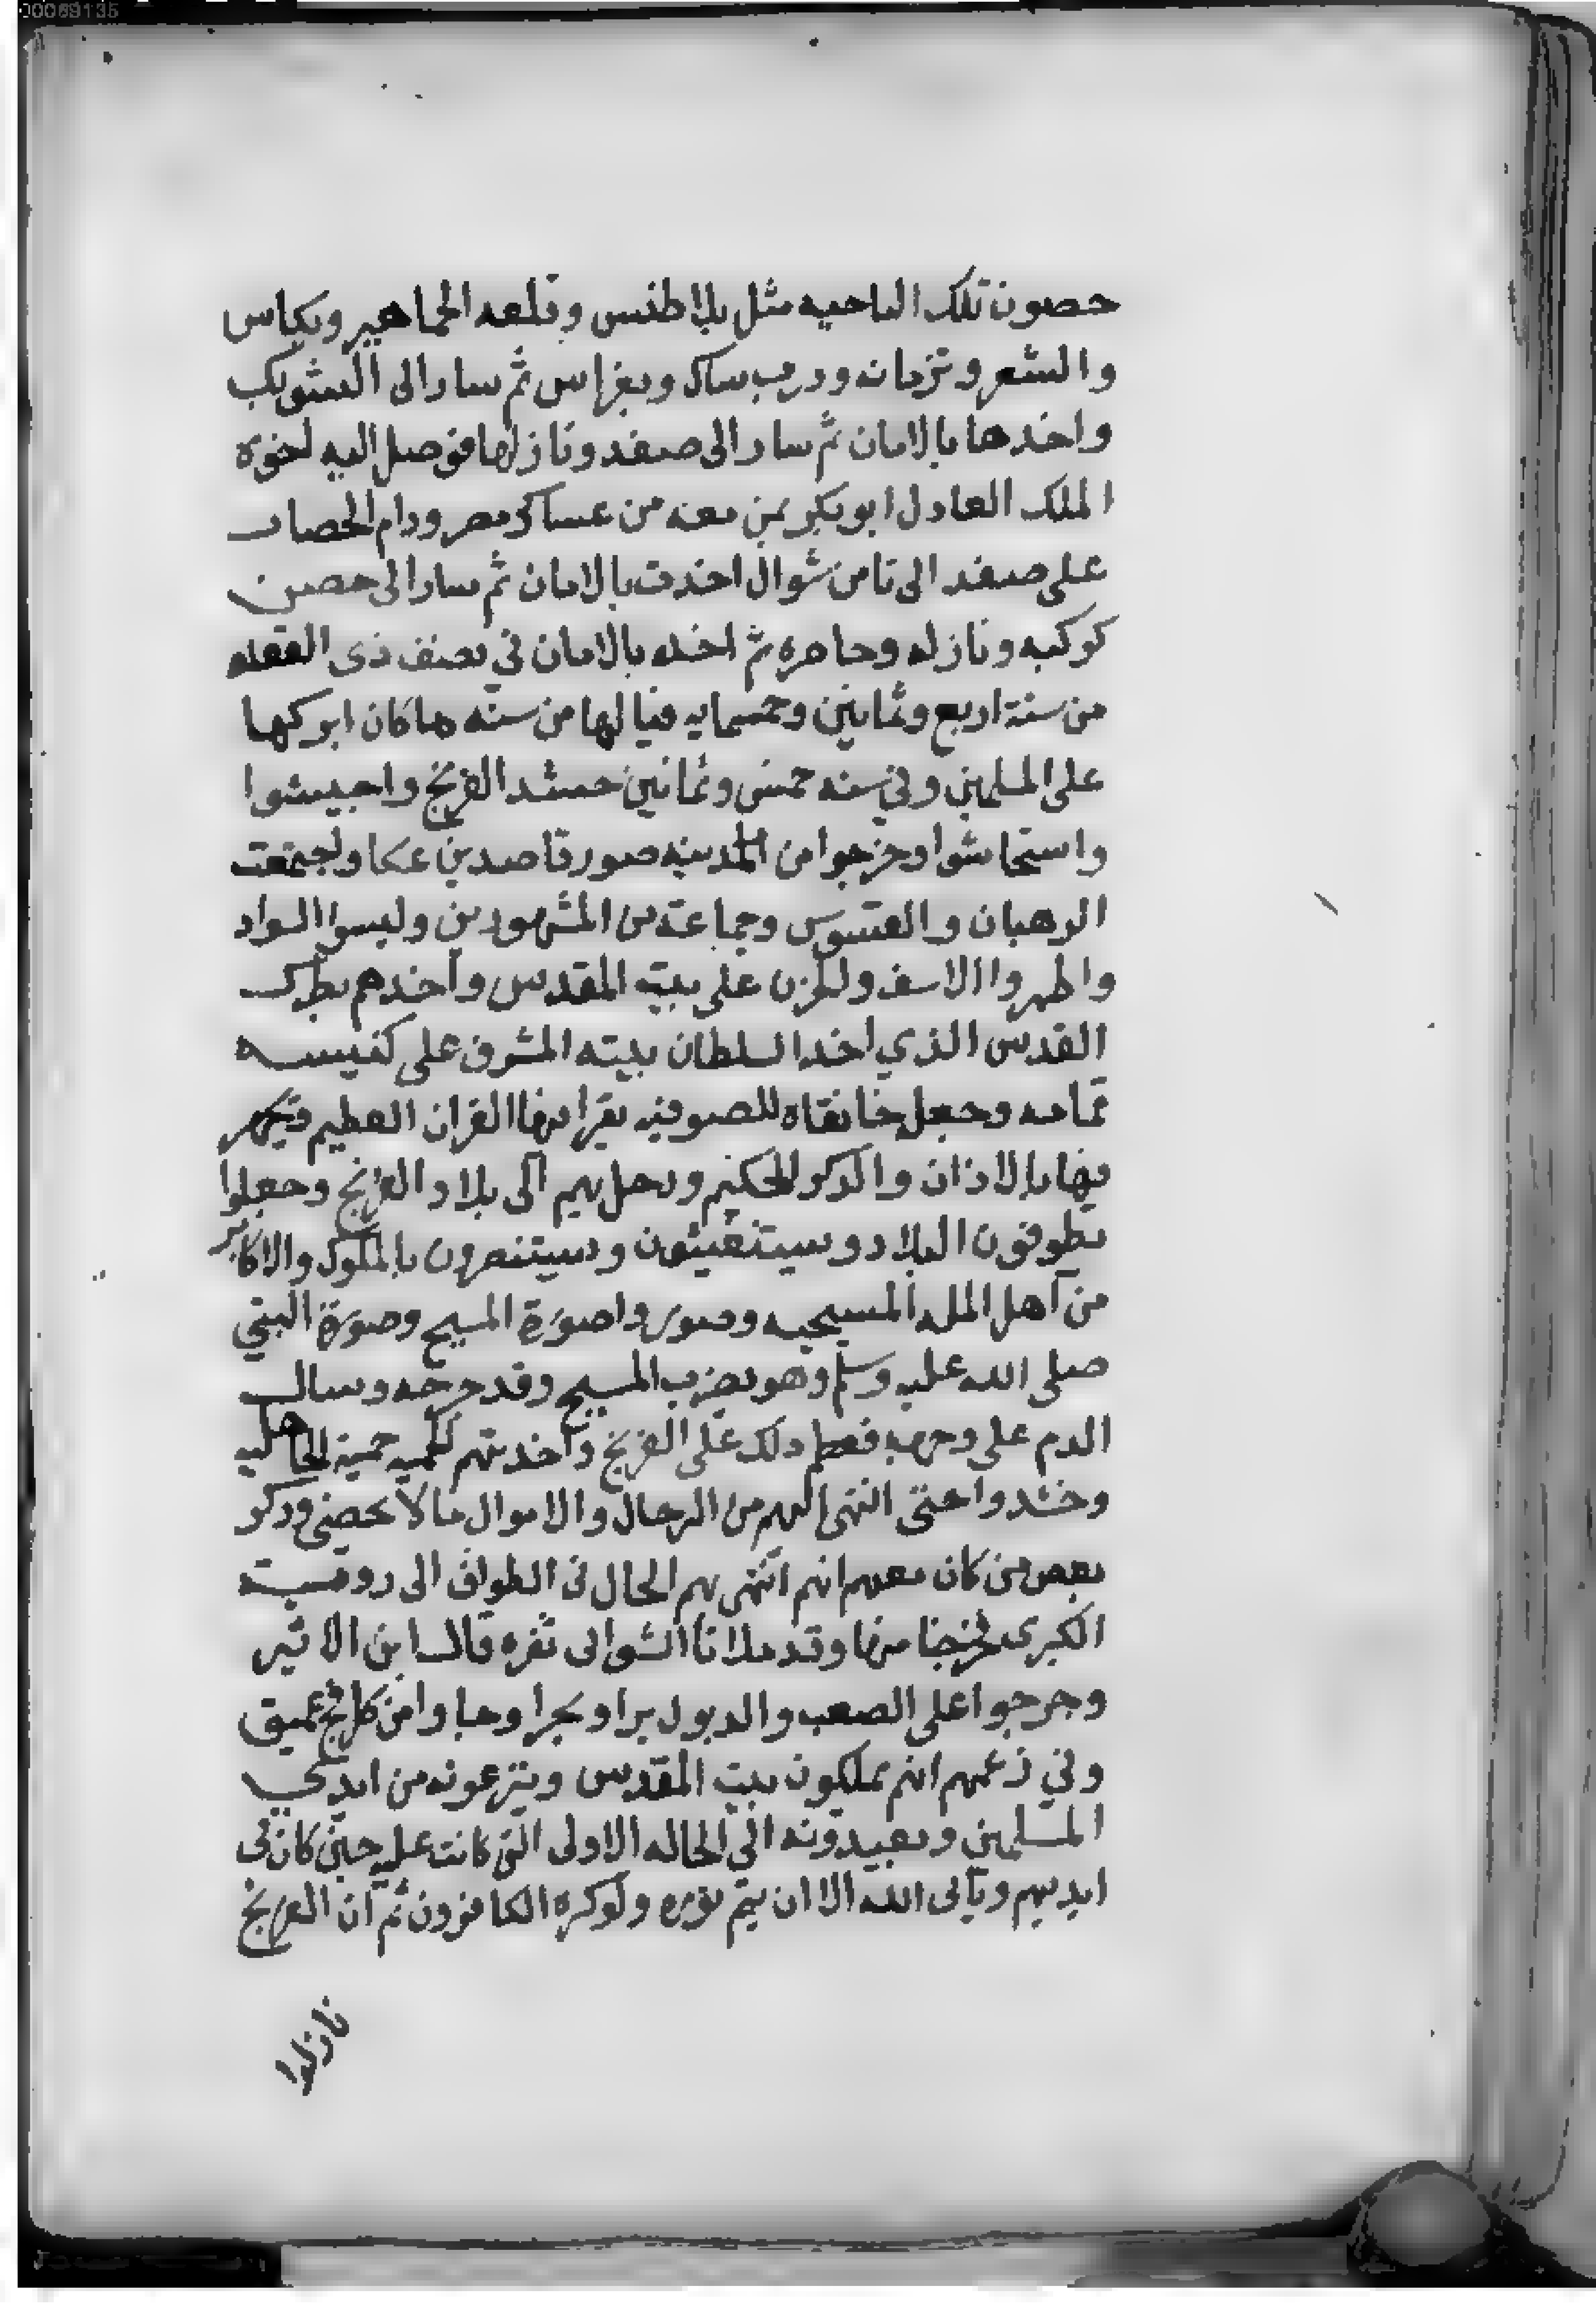 00069135
حصون تلك الناحيه مثل بلاطنس وقلعه الجماهير وبكاس
والشعر وتزمانه ودرب ساك وبغراس ثم سار الى الشوبك
واخدها بالامان ثم سار الى صفد ونازلها فوصل اليه اخوه
الملك العادل ابو بكر بمن معه من عساكر مصر ودام الحصار
على صفد الى ثامن شوال اخدت بالامان ثم سار الى حصن
كوكبه ونازله وحاصره ثم اخده بالامان في نصف ذى القعده
من سنة اربع وثمانين وخمسمايه فيا لها من سنه ما كان ابركها
على المسلمين وفي سنه خمس وثمانين حشد الفرنج واجيشوا
واستجاشوا وخرجوا من المدينه صور قاصدين عكا واجتمعت
الرهبان والقسوس وجماعة من المشهورين ولبسوا السواد
واظهروا الاسف والحزن على بيت المقدس واخدهم بطرك
القدس الذي اخد السلطان بيته المشرف على كنيسه
قمامه وجعله خانقاه للصوفيه يقرا فيها القران العظيم فيجهر
فيها بالاذان والذكر الحكيم ودخل بهم الى بلاد الفرنج وجعلوا
يطوفون البلاد وسيتغيثون وسيتنصرون بالملوك والاكابر
من اهل المله المسيحيه وصوروا صورة المسيح وصورة النبي
صلى الله عليه وسلم وهو يضرب المسيح وقد جرحه وسال
الدم على وجهه فعظم دلك على الفرنج واخدتهم الحميه حمية الجاهليه
وحشدوا حتى انتهى اليهم من الرجال والاموال ما لا يحصى وذكر
بعض من كان معهم انهم انتهى بهم الحال في الطواف الى رومية
الكبرى فخرجنا منها وقد ملانا الشوانى نقره قال ابن الاثير
وخرجوا على الصعب والدبول برا وبحرا وجاوا من كل فج عميق
وفي زعمهم انهم يملكون بيت المقدس وينزعونه من ايدي
المسلمين ويعيدونه الى الحاله الاولى التى كانت عليه حين كان في
ايديهم ويابى الله الا ان يتم نوره ولو كره الكافرون ثم ان الفرنج
نازلوا